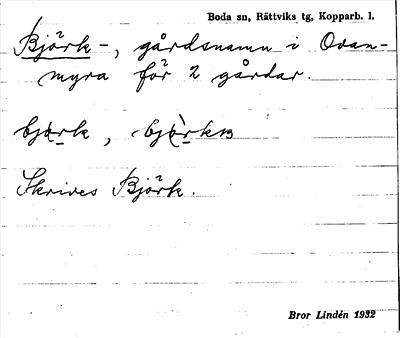 Boda sn, Rättviks tg, Kopparb. l.
Björk-, gårdsnamn i Ovan-
myra för 2 gårdar.
Skrives Björk.
Bror Lindén 1932